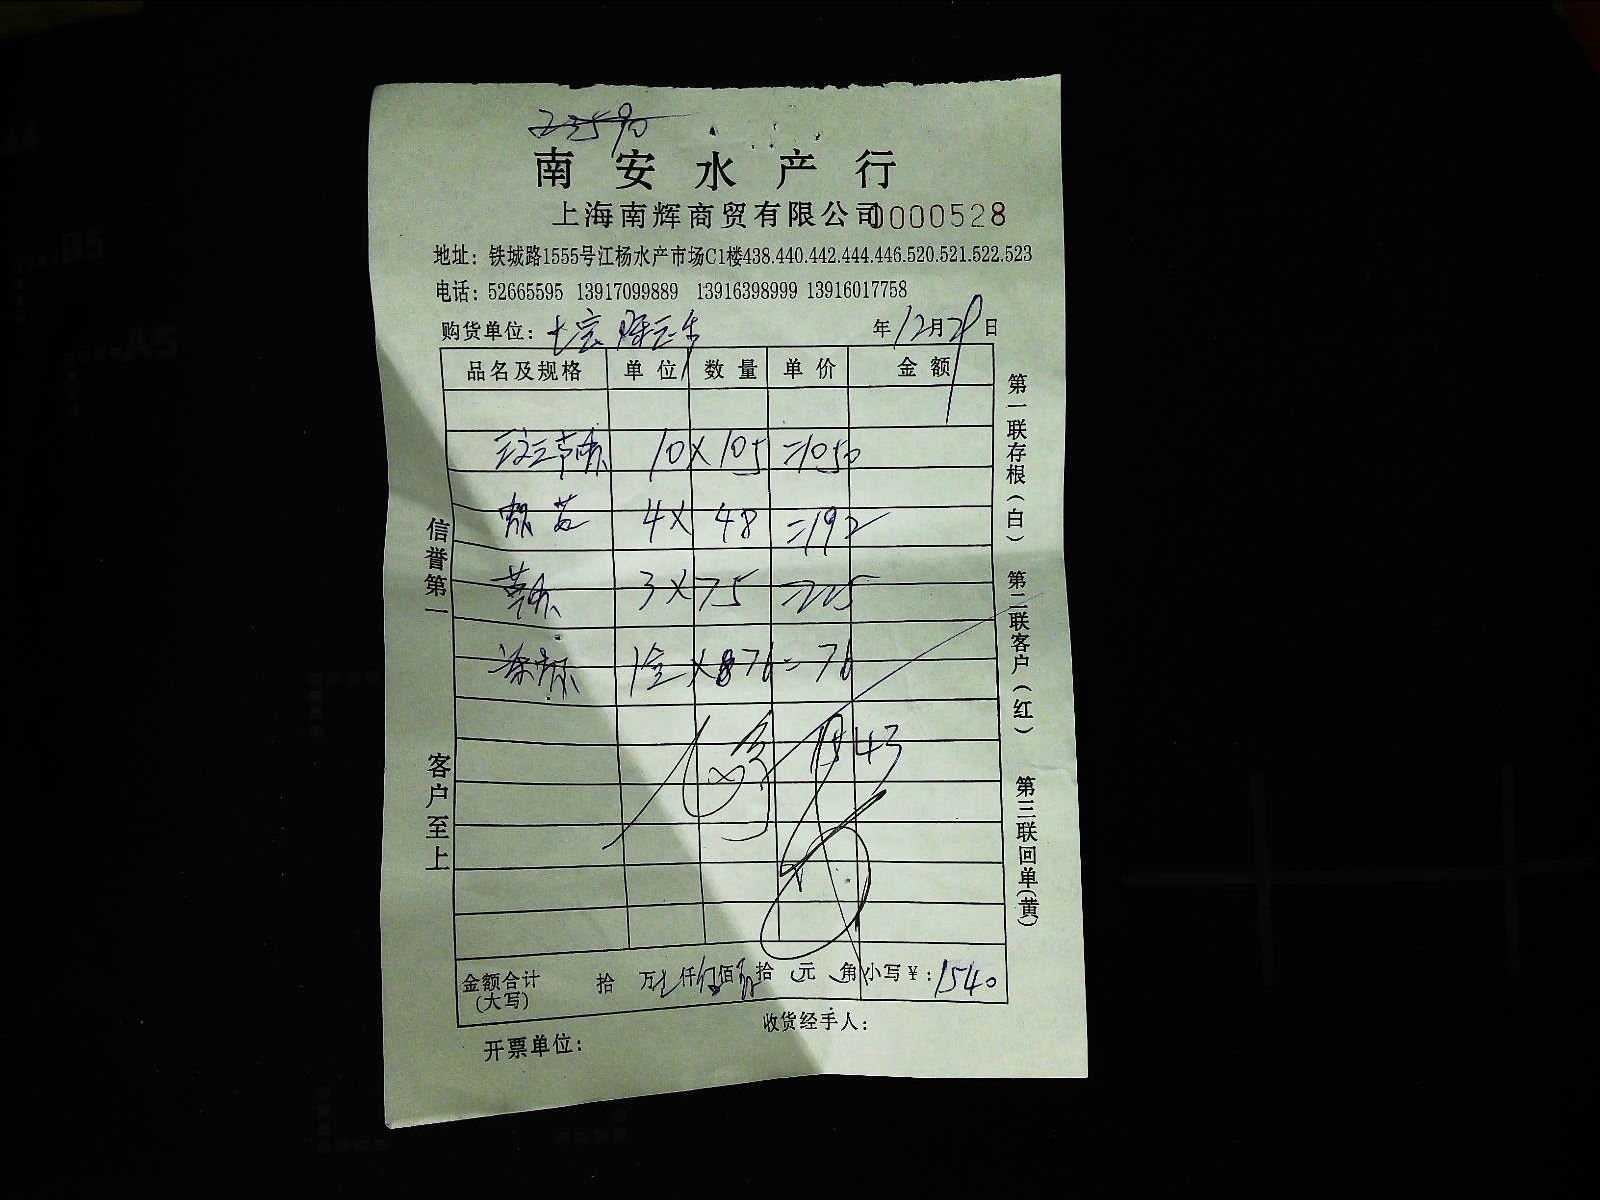 南安水产行
上海南辉商贸有限公司 0000528
地址：铁城路1555号江杨水产市场C1楼438.440.442.444.446.520.521.522.523
电话：52665595 13917099889 13916398999 13916017758
购货单位： 年12月29日
品名及规格 单位 数量 单价 金额
10×105=1050
4×48=192
3×75=225
×76=76
1543
金额合计（大写） 拾 万 仟 佰 拾 元 角 小写￥：1540
开票单位： 收货经手人：
信誉第一 客户至上
第一联存根（白） 第二联客户（红） 第三联回单（黄）